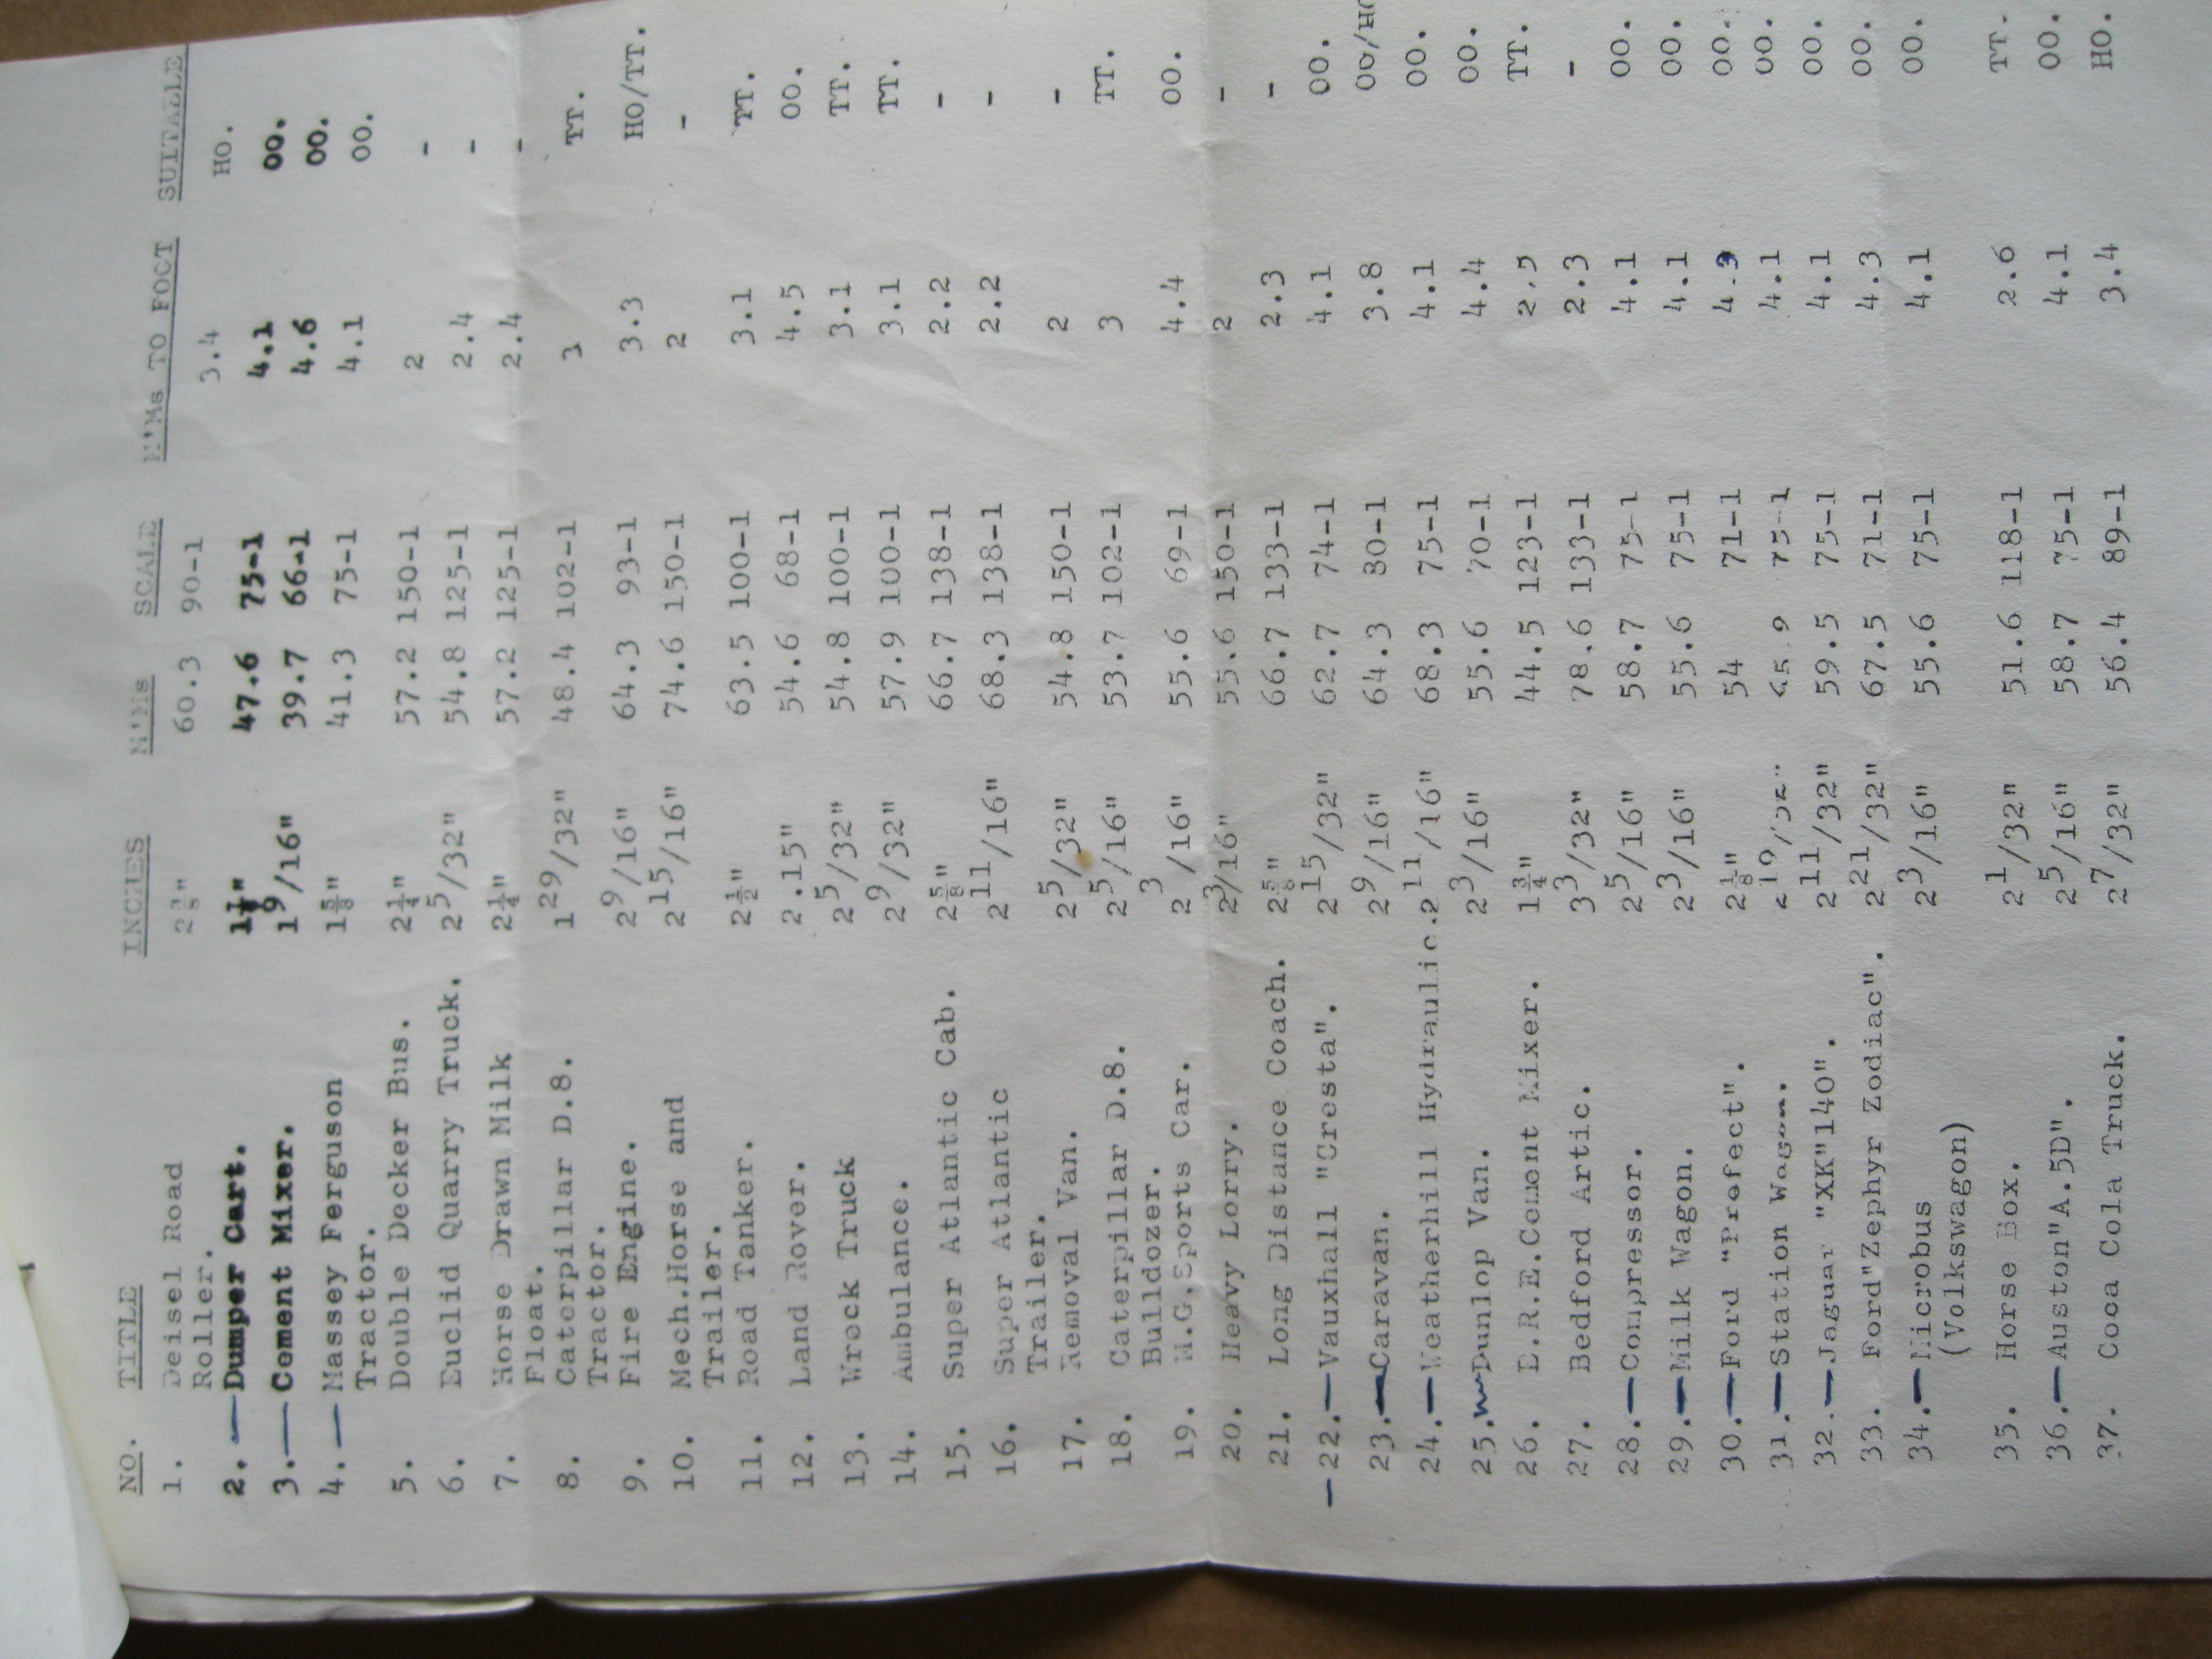 NO. TITLE INCHES M'Ms SCALE M'Ms TO FOOT SUITABLE
1. Deisel Road 2⅜" 60.3 90-1 3.4 HO.
Roller.
2. Dumper Cart. 47.6 75-1 4.1 OO.
3. Cement Mixer. 1 9/16" 39.7 66-1 4.6 OO.
4. Massey Ferguson 1⅝" 41.3 75-1 4.1 OO.
Tractor.
5. Double Decker Bus. 2¼" 57.2 150-1 2 -
6. Euclid Quarry Truck. 2 5/32" 54.8 125-1 2.4 -
7. Horse Drawn Milk 2¼" 57.2 125-1 2.4 -
Float.
8. Caterpillar D.8. 1 29/32" 48.4 102-1 3 TT.
Tractor.
9. Fire Engine. 2 9/16" 64.3 93-1 3.3 HO/TT.
10. Mech.Horse and 2 15/16" 74.6 150-1 2 -
Trailer.
11. Road Tanker. 2½" 63.5 100-1 3.1 TT.
12. Land Rover. 2.15" 54.6 68-1 4.5 OO.
13. Wreck Truck 2 5/32" 54.8 100-1 3.1 TT.
14. Ambulance. 2 9/32" 57.9 100-1 3.1 TT.
15. Super Atlantic Cab. 2⅝" 66.7 138-1 2.2 -
16. Super Atlantic 2 11/16" 68.3 138-1 2.2 -
Trailer.
17. Removal Van. 2 5/32" 54.8 150-1 2 -
18. Caterpillar D.8. 2 5/16" 53.7 102-1 3 TT.
Bulldozer.
19. M.G.Sports Car. 2 3/16" 55.6 69-1 4.4 OO.
20. Heavy Lorry. 2 3/16" 55.6 150-1 2 -
21. Long Distance Coach. 2⅝" 66.7 133-1 2.3 -
22. Vauxhall "Cresta". 2 15/32" 62.7 74-1 4.1 OO.
23. Caravan. 2 9/16" 64.3 80-1 3.8 OO/HO
24. Weatherhill Hydraulic. 2 11/16" 68.3 75-1 4.1 OO.
25. Dunlop Van. 2 3/16" 55.6 70-1 4.4 OO.
26. E.R.E.Cement Mixer. 1¾" 44.5 123-1 2.5 TT.
27. Bedford Artic. 3 3/32" 78.6 133-1 2.3 -
28. Compressor. 2 5/16" 58.7 75-1 4.1 OO.
29. Milk Wagon. 2 3/16" 55.6 75-1 4.1 OO.
30. Ford "Prefect". 2⅛" 54 71-1 4.3 OO.
31. Station Wagon. 2 19/32" 65.9 75-1 4.1 OO.
32. Jaguar "XK"140". 2 11/32" 59.5 75-1 4.1 OO.
33. Ford"Zephyr Zodiac". 2 21/32" 67.5 71-1 4.3 OO.
34. Microbus 2 3/16" 55.6 75-1 4.1 OO.
(Volkswagon)
35. Horse Box. 2 1/32" 51.6 118-1 2.6 TT.
36. Auston"A.5D". 2 5/16" 58.7 75-1 4.1 OO.
37. Coca Cola Truck. 2 7/32" 56.4 89-1 3.4 HO.